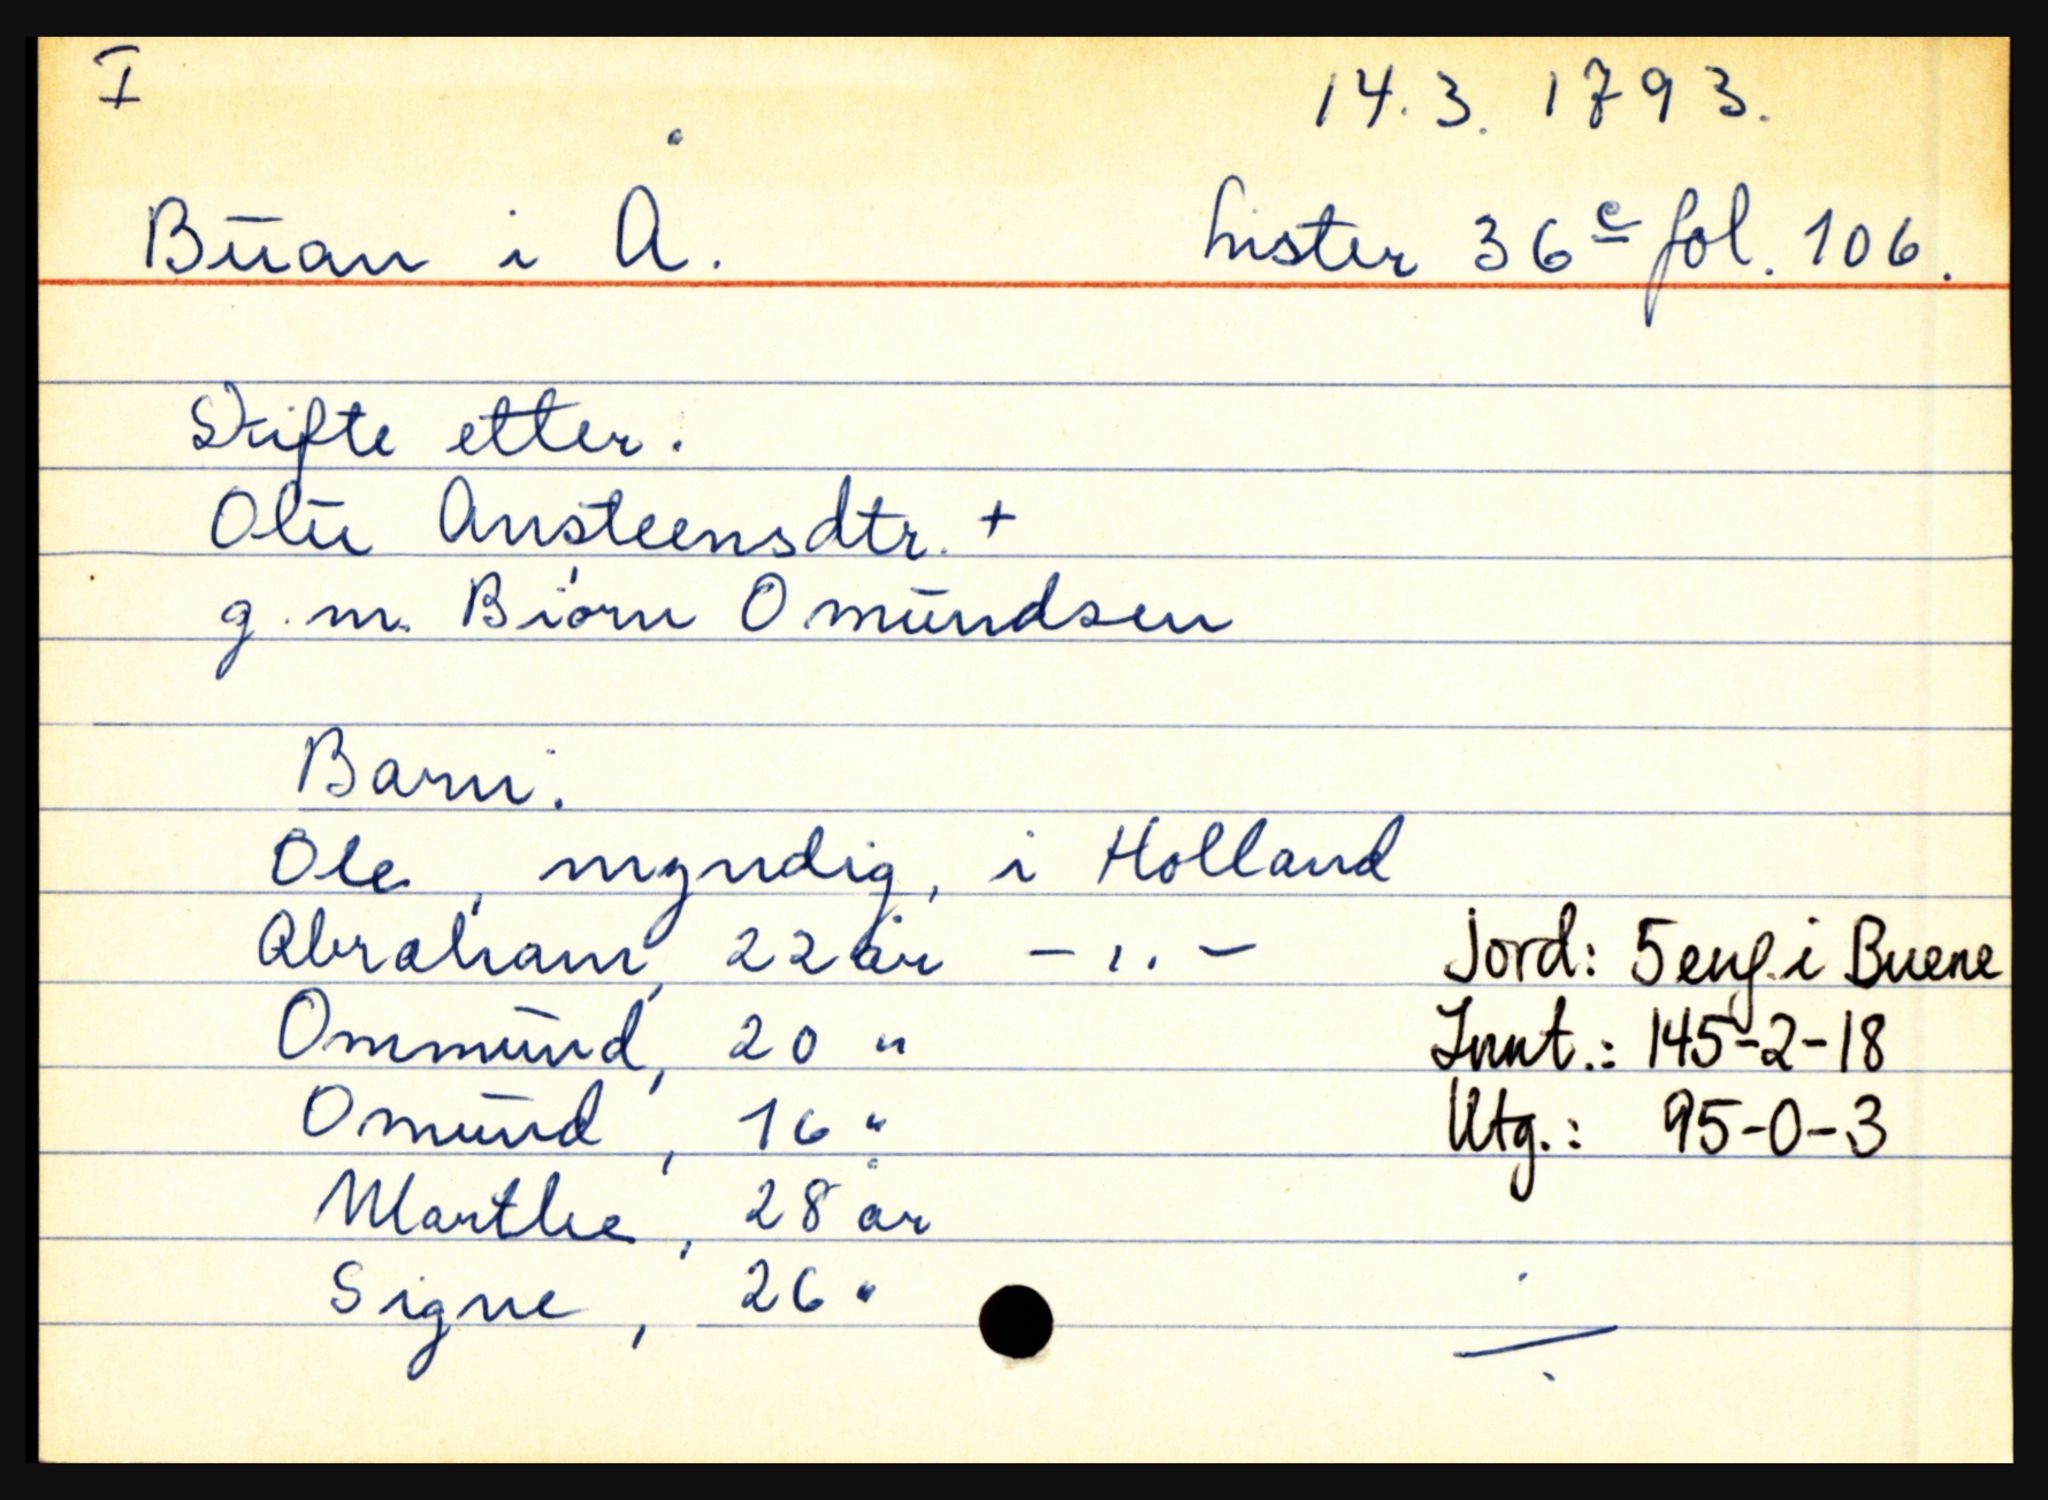 I
14.3.1793.
Buan i Å.
Lister 36c fol. 106.
Skifte etter.
Olu Ansteensdtr. +
g.m. Biørn Omundsen
Barn:
Ole, myndig, i Holland
Abraham, 22 år - ,, -
Ommund, 20 "
Omund, 16 "
Marthe, 28 år
Signe, 26 "
Jord: 5 eng. i Buene
Innt.: 145-2-18
Utg.: 95-0-3